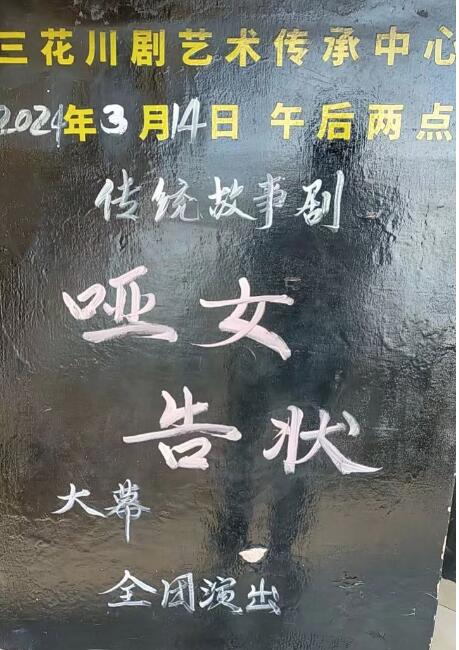 三花川剧艺术传承中心
2024年3月14日 午后两点
传统故事剧
哑女
告状
大幕
全团演出